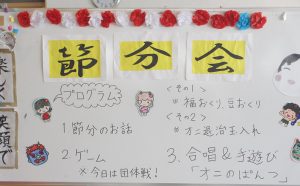 節分会
プログラム
1 節分のお話
2. ゲーム
※今日は団体戦!
<その1>
※福おくり、豆おくり
<その2>
※オニ退治玉入れ
3. 合唱&手遊び
「オニのぱんつ」
楽しく
笑顔で